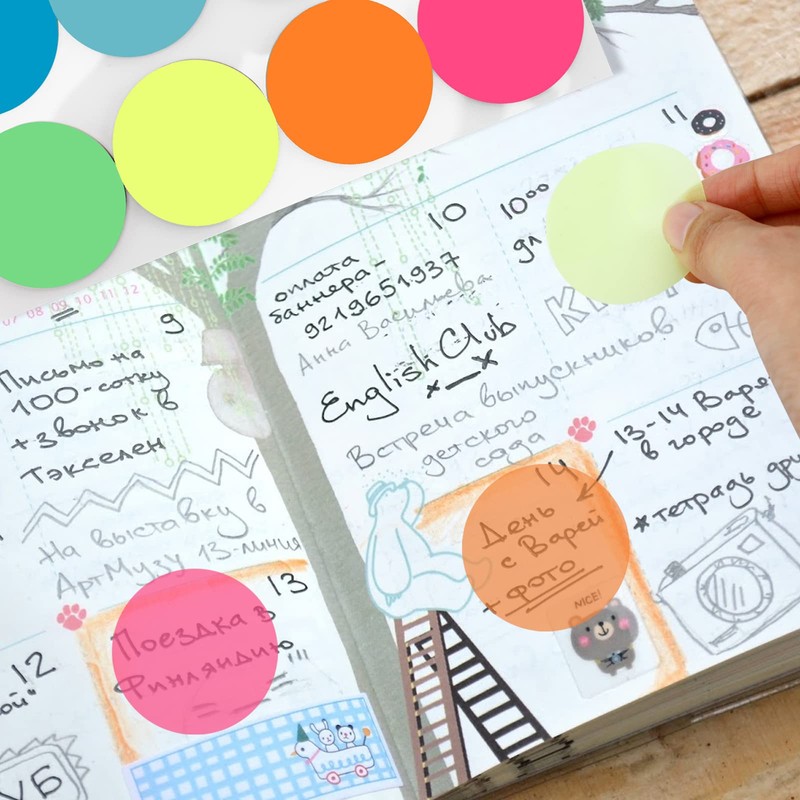 07 08 09 10 11 12
9
Письмо на
100-сотку
+звонок в
Тэкселен
На выставку в
АртМузу 13-линия
13
Поездка в
Финляндию
12
ой"
УБ
10
оплата
баннера-
9219651937
Анна Васильева
English Club
Встреча выпускников
детского
сада
14
День
с Варей
+ фото
NICE!
11
10⁰⁰
13-14 Варе
в городе
*тетрадь